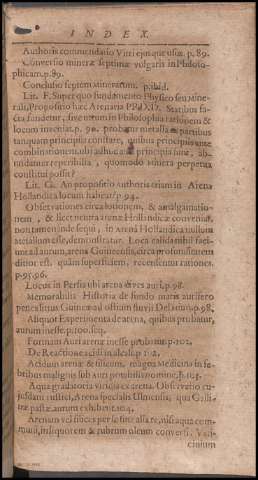 INDEX.
Authoris commendatio Vitri ejusque usus. p. 89.
Conversio mineræ septimæ vulgaris in Philoso-
phicam. p. 89.
Conclusio septem minerarum. p. ibid.
Lit. F. Super quo fundamento Physico seu Mine-
rali, Propositio hæc Arenaria
fundetur, sive utrum in Philosophia rationem &
locum inveniat. p. 90. probatur metalla partibus
tanquam principiis constare, quibus principiis ante
combinationem ubi adhuc principia sunt, abu-
undanter reperibilia, quomodo minera perpetua
constitui possit?
Lit. G. An propositio authoris etiam in Arena
Hollandica locum habeat? p. 94.
Objectiones circa solutionem, & amalgamatio-
nem, & licet neutra arenæ Hollandicæ conveniat,
non tamen inde sequi, in arena Hollandica nullum
metallum esse, demonstratur. Loca calida nihil faci-
unt ad aurum, arena Guineensis, circa profunditatem
ditior est, quam superficiem, recensentur rationes.
p. 95. 96.
Locus in Persia ubi arena dives auri. p. 98.
Memorabilis Historia de fundo maris aurifero
penes littus Guineæ ad ostium fluvii p. 98.
Aliquot Experimenta de arena, quibus probatur,
aurum inesse. p. 100. seq.
Formam Auri arenæ inesse probatur p. 102.
De Reactione acidi in alcali. p. 102.
Acidum arenæ & silicum, magna Medicina in fe-
bribus malignis sub auri potabilis nomine. p. 103.
Aqua gradatoria viridis ex arena. Observatio cu-
jusdam rustici, Arena specialis Ulmensis, qua Galli-
næ pastæ, aurum exhibent. 104.
Arenam vel silices per se sine alia re, nisi aqua com-
muni, in liquorem & rubrum oleum converti. Vati-
cinium